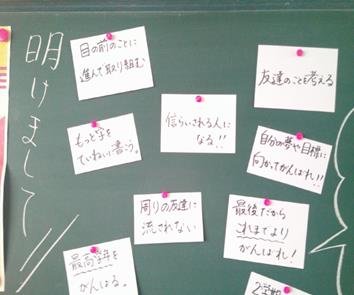 明けまして
目の前のことに
進んで取り組む
もっと字を
ていねい書う。
信らいされる人に
なる!!
友達のことを考える
自分の夢や目標に
向かってがんばれ!!
周りの友達に
流されない
最後だから
これまでより
がんばれ!
最高学年を
がんばる。